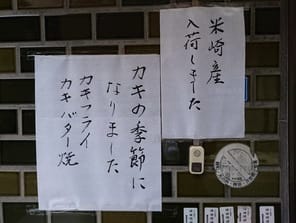 米崎産
入荷しました
カキの季節に
なりました
カキフライ
カキバター焼